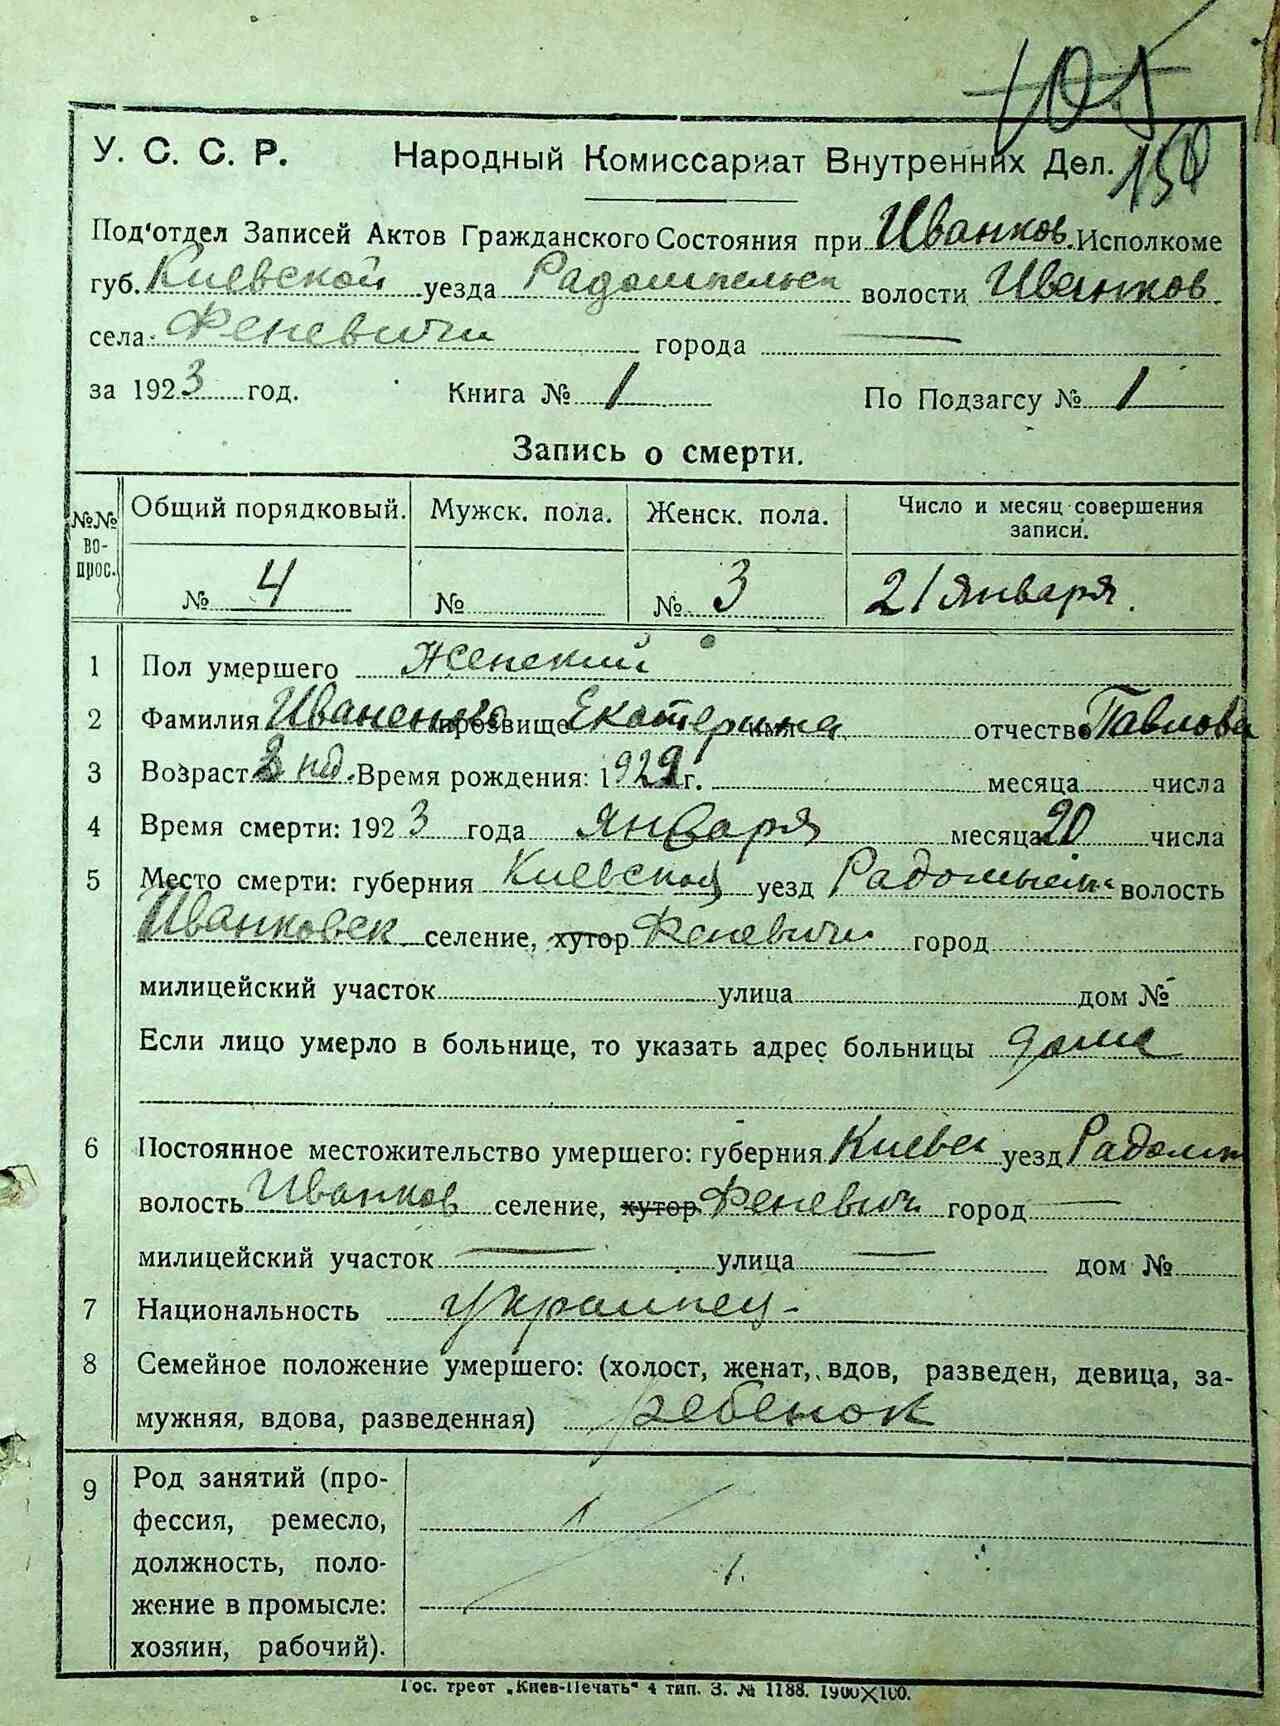 105
150
У. С. С. Р. Народный Комиссариат Внутренних Дел.
Под'отдел Записей Актов Гражданского Состояния при Иванков. Исполкоме
губ. Киевской уезда Радомысльск волости Иванков.
села Феневичи города —
за 1923 год. Книга № 1 По Подзагсу № 1
Запись о смерти.
№№ во- прос. Общий порядковый. Мужск. пола. Женск. пола. Число и месяц совершения записи.
№ 4 № № 3 21 Января.
1 Пол умершего Женский
2 Фамилия Иваненко прозвище Екатерина имя отчество Павлова
3 Возраст нд. Время рождения: 192 г. месяца числа
4 Время смерти: 1923 года января месяца 20 числа
5 Место смерти: губерния Киевской уезд Радомысльск волость
Иванковск селение, хутор Феневичи город
милицейский участок улица дом №
Если лицо умерло в больнице, то указать адрес больницы дома
6 Постоянное местожительство умершего: губерния Киевск уезд Радом
волость Иванков селение, хутор Феневичи город —
милицейский участок — улица — дом №
7 Национальность украинец -
8 Семейное положение умершего: (холост, женат, вдов, разведен, девица, за-
мужняя, вдова, разведенная) ребенок
9 Род занятий (про-
фессия, ремесло,
должность, поло-
жение в промысле:
хозяин, рабочий).
Гос. трест „Киев-Печать“ 4 тип. З. № 1188. 1900×100.